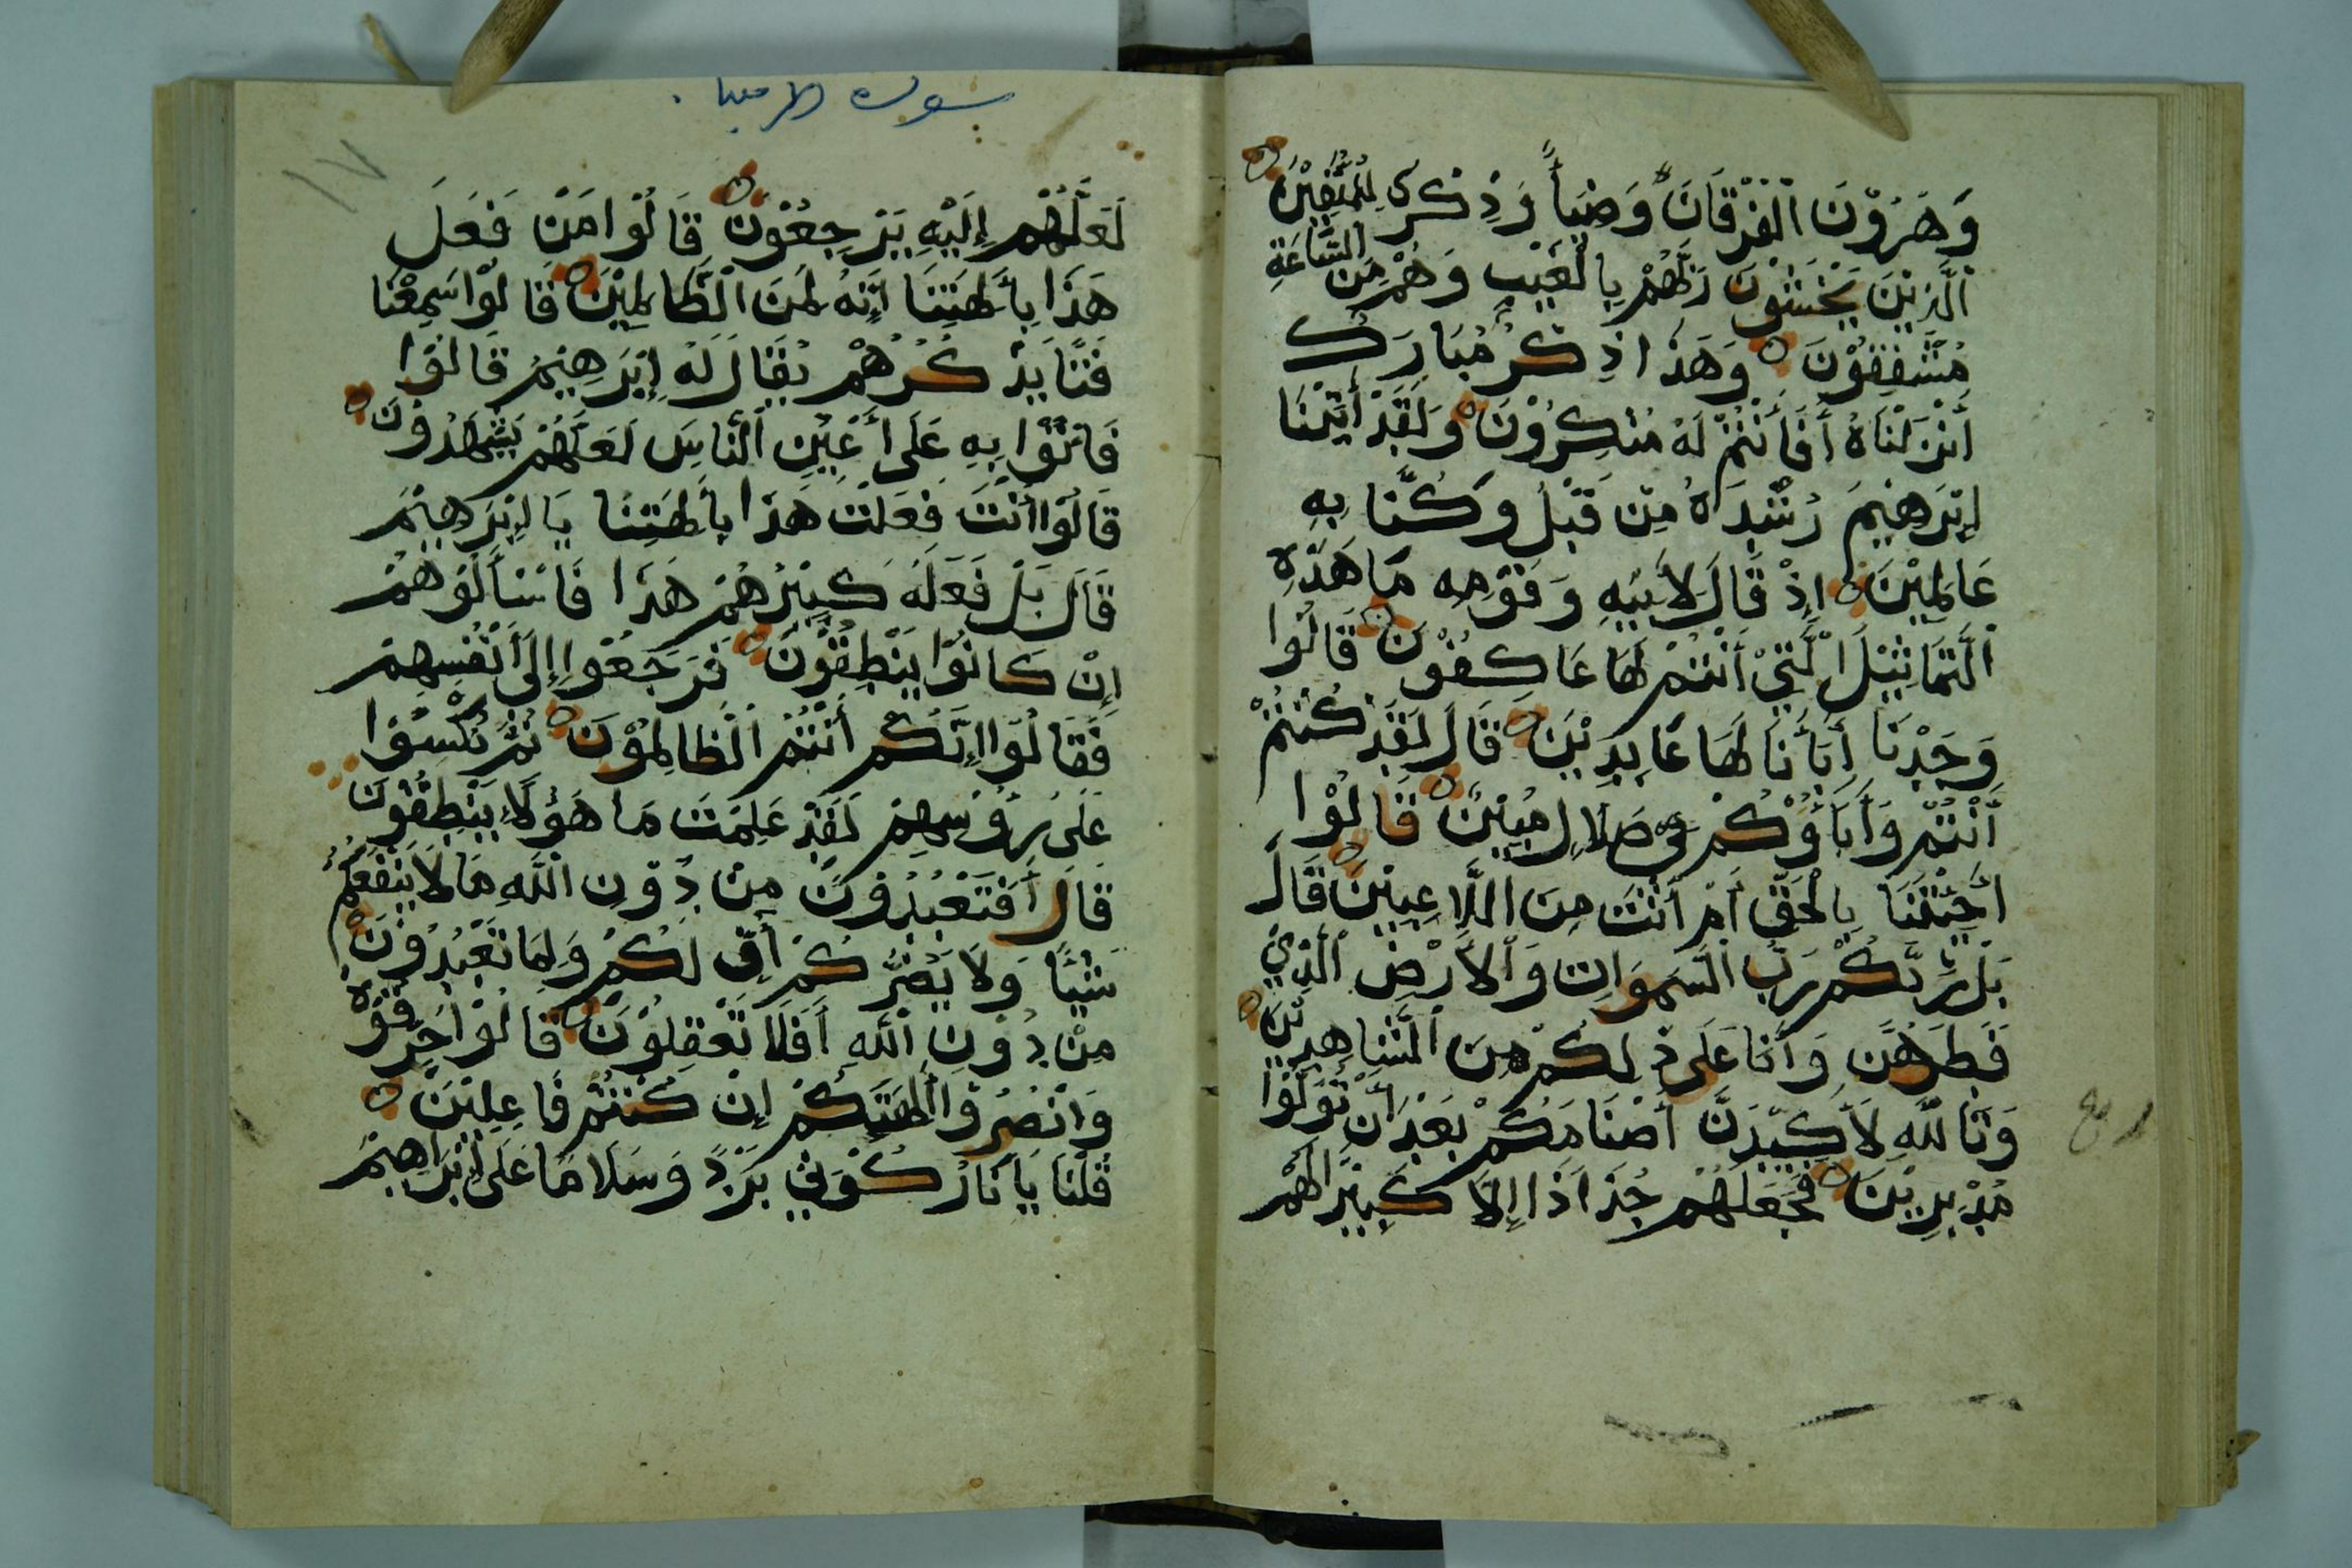 وَهَرُوْنَ الْفُرْقَانَ وَضِيَأً وَذِكْرَى لِلْمُتَّقِيْنَ
الَّذِيْنَ يَخْشَوْنَ رَبَّهُمْ بِالْغَيْبِ وَهُمْ مِنَ السَّاعَةِ
مُشْفِقُوْنَ وَهَذَا ذِكْرٌ مُبَارَكٌ
أَنْزَلْنَاهُ أَفَأَنْتُمْ لَهُ مُنْكِرُوْنَ وَلَقَدْ أَتَيْنَا
إِبْرَهِيْمَ رُشْدَاهُ مِنْ قَبْلُ وَكُنَّا بِهِ
عَالِمِيْنَ إِذْ قَالَ لِأَبِيْهِ وَقَوْمِهِ مَا هَذِهِ
الَّتمَاثِيْلَ الَّتِيْ أَنْتُمْ لَهَا عَاكِفُوْنَ قَالُوْا
وَجَدْنَا أَبَأَنَا لَهَا عَابِدِيْنَ قَالَ لَقَدْ كُنْتُمْ
أَنْتُمْ وَأَبَأُوْكُمْ فِي ضَلَالٍ مُبِيْنٍ قَالُوْا
أَجِئْتَنَا بِالْحَقِّ أَمْ أَنْتَ مِنَ اللَّاعِبِيْنَ قَالَ
بَلْ رَبُّكُمْ رَبُّ السَّمَوَاتِ وَالْأَرْضِ الَّذِيْ
فَطَرَهُنَّ وَأَنَا عَلَى ذَلِكُمْ مِنَ الشَّاهِدِيْنَ
وَتَاللَّهِ لَأَكِيْدَنَّ أَصْنَامَكُمْ بَعْدَ أَنْ تُوَلُّوْا
مُدْبِرِيْنَ فَجَعَلَهُمْ جُذَاذَا إِلَّا كَبِيْرًا لَهُمْ
سورة الانبيا
١٧
لَعَلَّهُمْ إِلَيْهِ يَرْجِعُوْنَ قَالُوْا مَنْ فَعَلَ
هَذَا بِأَلِهَتِنَا إِنَّهُ لَمِنَ الْظَّالِمِيْنَ قَالُوْا سَمِعْنَا
فَتًا يَذْكُرُهُمْ يُقَالَ لَهُ إِبْرَهِيْمُ قَالُوْا
فَاتُوْا بِهِ عَلَى أَعْيُنِ الْنَّاسِ لَعَلَّهُمْ يَشْهَدُوْنَ
قَالُوْا أَنْتَ فَعَلْتَ هَذَا بِأَلِهَتِنَا يَا إِبْرَهِيْمُ
قَالَ بَلْ فَعَلَهُ كَبِيْرُهُمْ هَذَا فَاسْأَلُوْهُمْ
إِنْ كَانُوْا يَنْطِقُوْنَ فَرَجَعُوْا إِلَى أَنْفُسِهِمْ
فَقَالُوْا إِنَّكُمْ أَنْتُمُ الْظَّالِمُوْنَ ثُمَّ نُكِسُوْا
عَلَى رُؤُسِهِمْ لَقَدْ عَلِمْتَ مَا هَؤُلَاءِ يَنْطِقُوْنَ
قَالَ أَفَتَعْبُدُوْنَ مِنْ دُوْنِ اللَّهِ مَا لَا يَنْفَعُكُمْ
شَيْئًا وَلَا يَضُرُّكُمْ أُفٍّ لَكُمْ وَلِمَا تَعْبُدُوْنَ
مِنْ دُوْنِ اللَّهِ أَفَلَا تَعْقِلُوْنَ قَالُوْا حَرِّقُوْهُ
وَانْصُرُوْا أَلِهَتَكُمْ إِنْ كُنْتُمْ فَاعِلِيْنَ
قُلْنَا يَا نَارُ كُوْنِيْ بَرْدً وَسَلَامًا عَلَى إِبْرَاهِيْمَ